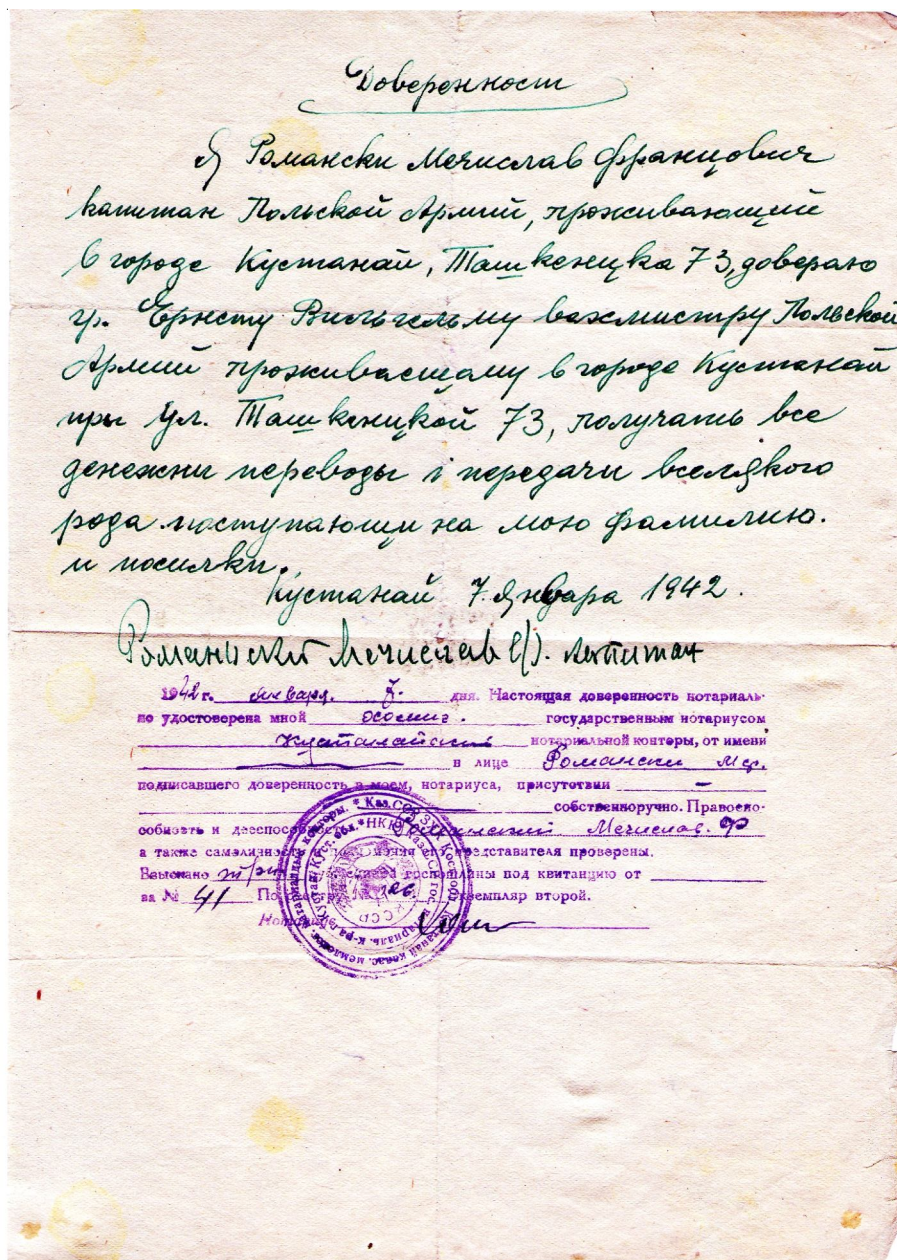 Доверенност
Я Романски Мечислав Францович
капитан Польской Армий, проживающий
в городе Кустанай, Ташкеницка 73, доверяю
гр. Ернсту Вильгельму вахмистру Польской
Армий проживаещаму в городе Кустанай
при ул. Ташкеницкой 73, получать все
денежни переводы і передачи вселякого
рода поступающи на мою фамилию.
и посилки.
Кустанай 7. Января 1942.
Романьский Мечислав капитан
1942 г. Января 7. дня. Настоящая доверенность нотариаль-
но удостоверена мной государственным нотариусом
Кустанайский нотариальной конторы, от имени
в лице Романски Меч.
подписавшего доверенность в моем, нотариуса, присутствии —
собственноручно. Правоспо-
собность и дееспособность Романский Мечислав. Ф
а также самоличность и полномочия его представителя проверены.
Взыскано госпошлины под квитанцию от
за № 41 По № Экземпляр второй.
Нотариус